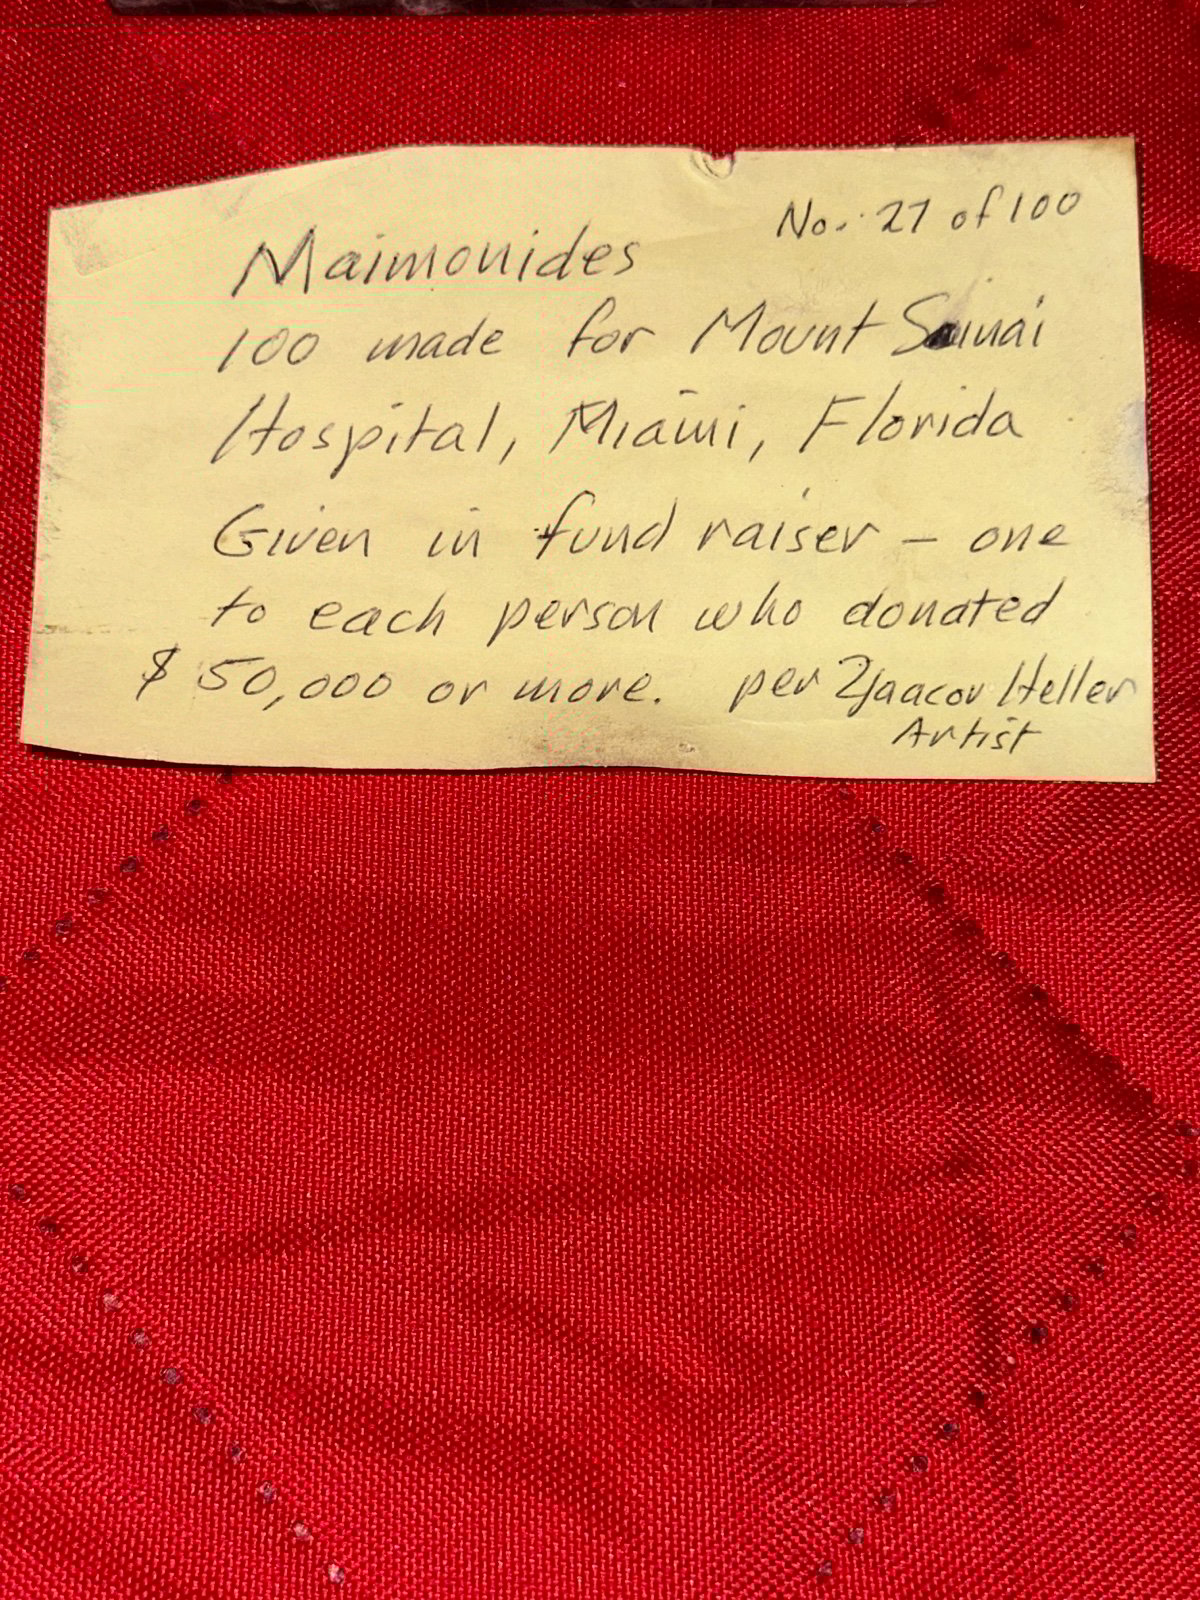 No. 27 of 100
Maimonides
100 made for Mount Sinai
Hospital, Miami, Florida
Given in fund raiser – one
to each person who donated
$ 50,000 or more. per Yaacov Heller
Artist